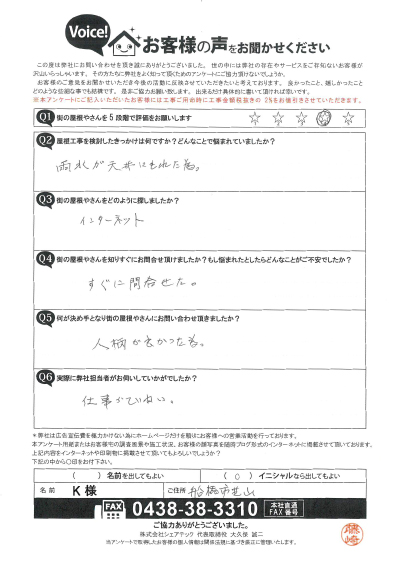 Voice!
お客様の声をお聞かせください
この度は弊社にお問い合わせを頂き誠にありがとうございました。 世の中には弊社の存在やサービスをご存知ないお客様が
沢山いらっしゃいます。 その方たちに弊社をよく知って頂くためのアンケートにご協力頂けないでしょうか。
お客様のご意見をお聞かせいただき今後の活動に反映させていただきたいと考えております。 良かったこと、嬉しかったこと
どのような些細な事でも結構です。 是非ご協力お願い致します。 出来るだけ具体的に書いて頂ければ幸いです。
※本アンケートにご記入いただいたお客様には工事ご用命時に工事金額税抜きの 2%をお値引きさせていただきます。
Q1 街の屋根やさんを5段階で評価をお願いします
☆ ☆ ☆ ☆ ☆
Q2 屋根工事を検討したきっかけは何ですか？どんなことで悩まれていましたか？
雨水が天井にもれた為。
Q3 街の屋根やさんをどのように探しましたか？
インターネット
Q4 街の屋根やさんを知りすぐにお問合せ頂けましたか？もし悩まれたとしたらどんなことがご不安でしたか？
すぐに問合せた。
Q5 何が決め手となり街の屋根やさんにお問い合わせ頂きましたか？
人柄が良かった為。
Q6 実際に弊社担当者がお伺いしていかがでしたか？
仕事がていねい。
※弊社は広告宣伝費を極力かけない為にホームページだけを頼りにお客様への営業活動を行っております。
本アンケート用紙またはお客様宅の調査風景や施工状況、お客様の顔写真を随時ブログ形式のインターネットに掲載させて頂いております。
上記内容をインターネットや印刷物に掲載させて頂いてもよろしいでしょうか？
下記の中から〇印をお付下さい。
（ ）名前を出してもよい （ ○ ）イニシャルなら出してもよい
名前 K 様 ご住所 船橋市芝山
FAX 0438-38-3310 本社直通 FAX番号
ご協力ありがとうございました。
株式会社シェアテック 代表取締役 大久保 誠二
※アンケートで取得したお客様の個人情報は関係法規に基づき厳正に管理いたします。
藤崎